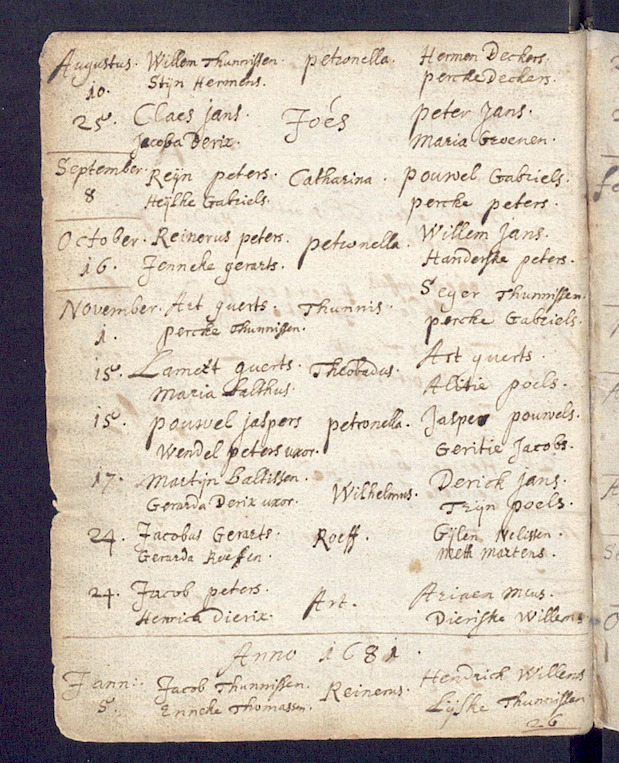 Augustus. Willem Thunnissen. petronella. Hermen Deckers.
10. Stijn Hermens. percke Deckers.
25. Claes jans. Joés peter Jans.
Jacoba Derix. Maria Groenen.
September. Reijn peters. Catharina. pouwel Gabriels.
8 Heijlke Gabriels. percke peters.
October. Reinerus peters. petronella. Willem Jans.
16. Jenneke gerarts. Handerske peters.
November. Art guerts. Thunnis. Seger Thunnissen.
1. percke Thunnissen. percke Gabriels.
15. Lamert guerts. Theobadus. Art guerts.
Maria Balthus. Alitie poels.
15. pouwel jaspers petronella. Jasper pouwels.
Wendel peters uxor. Geritie Jacobs.
17. Martijn Baltissen. Wilhelmus. Derick Jans.
Gerarda Derix uxor. Trijn poels.
24. Jacobus Gerarts. Roeff. Gijlen Nelissen.
Gerarda Roeffen. mett martens.
24. Jacob peters. Art. Ariaen meus.
Henrica Dierix. Dierifke Willems
Anno 1681.
Jann: Jacob Thunnissen. Reinerus. Hendrick Willens
5. Enneke Thomassen. Lijske Thunnissen
26